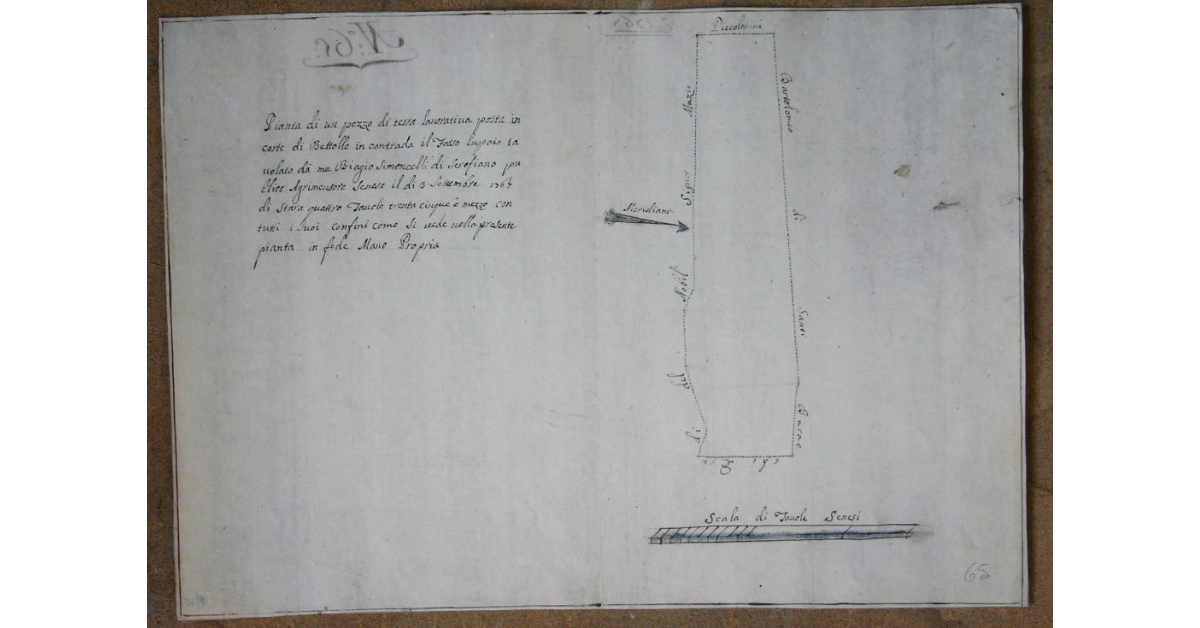 Nº 65.
Pianta di un pezzo di terra lavorativa posta in
corte di Bettolle in contrada il Fosso Luppaio ta
volato dà me Biagio Simoncelli di Scrofiano pu
blico Agrimensore Senese il di 3 Settembre
di Stara quattro Tavole trenta cinque è mezzo con
tutti i suoi confini come si vede nella presente
pianta in fede Mano Propria
Piccolomini
Muzio
Signor
Nobil
del
di
Bartolomeo
di
Santi
Meridiano.
Scala di Tavole Senesi
65